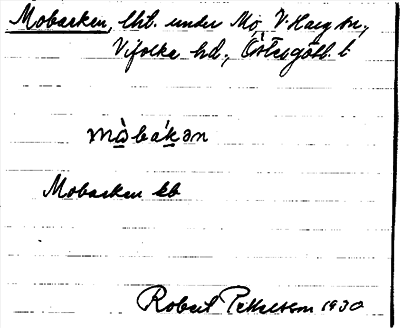 Mobacken, lht. under Mo V. Harg sn,
Vifolka hd., Östergötl. l
mòbákən
Mobacken kb
Robert Pettersson 1930